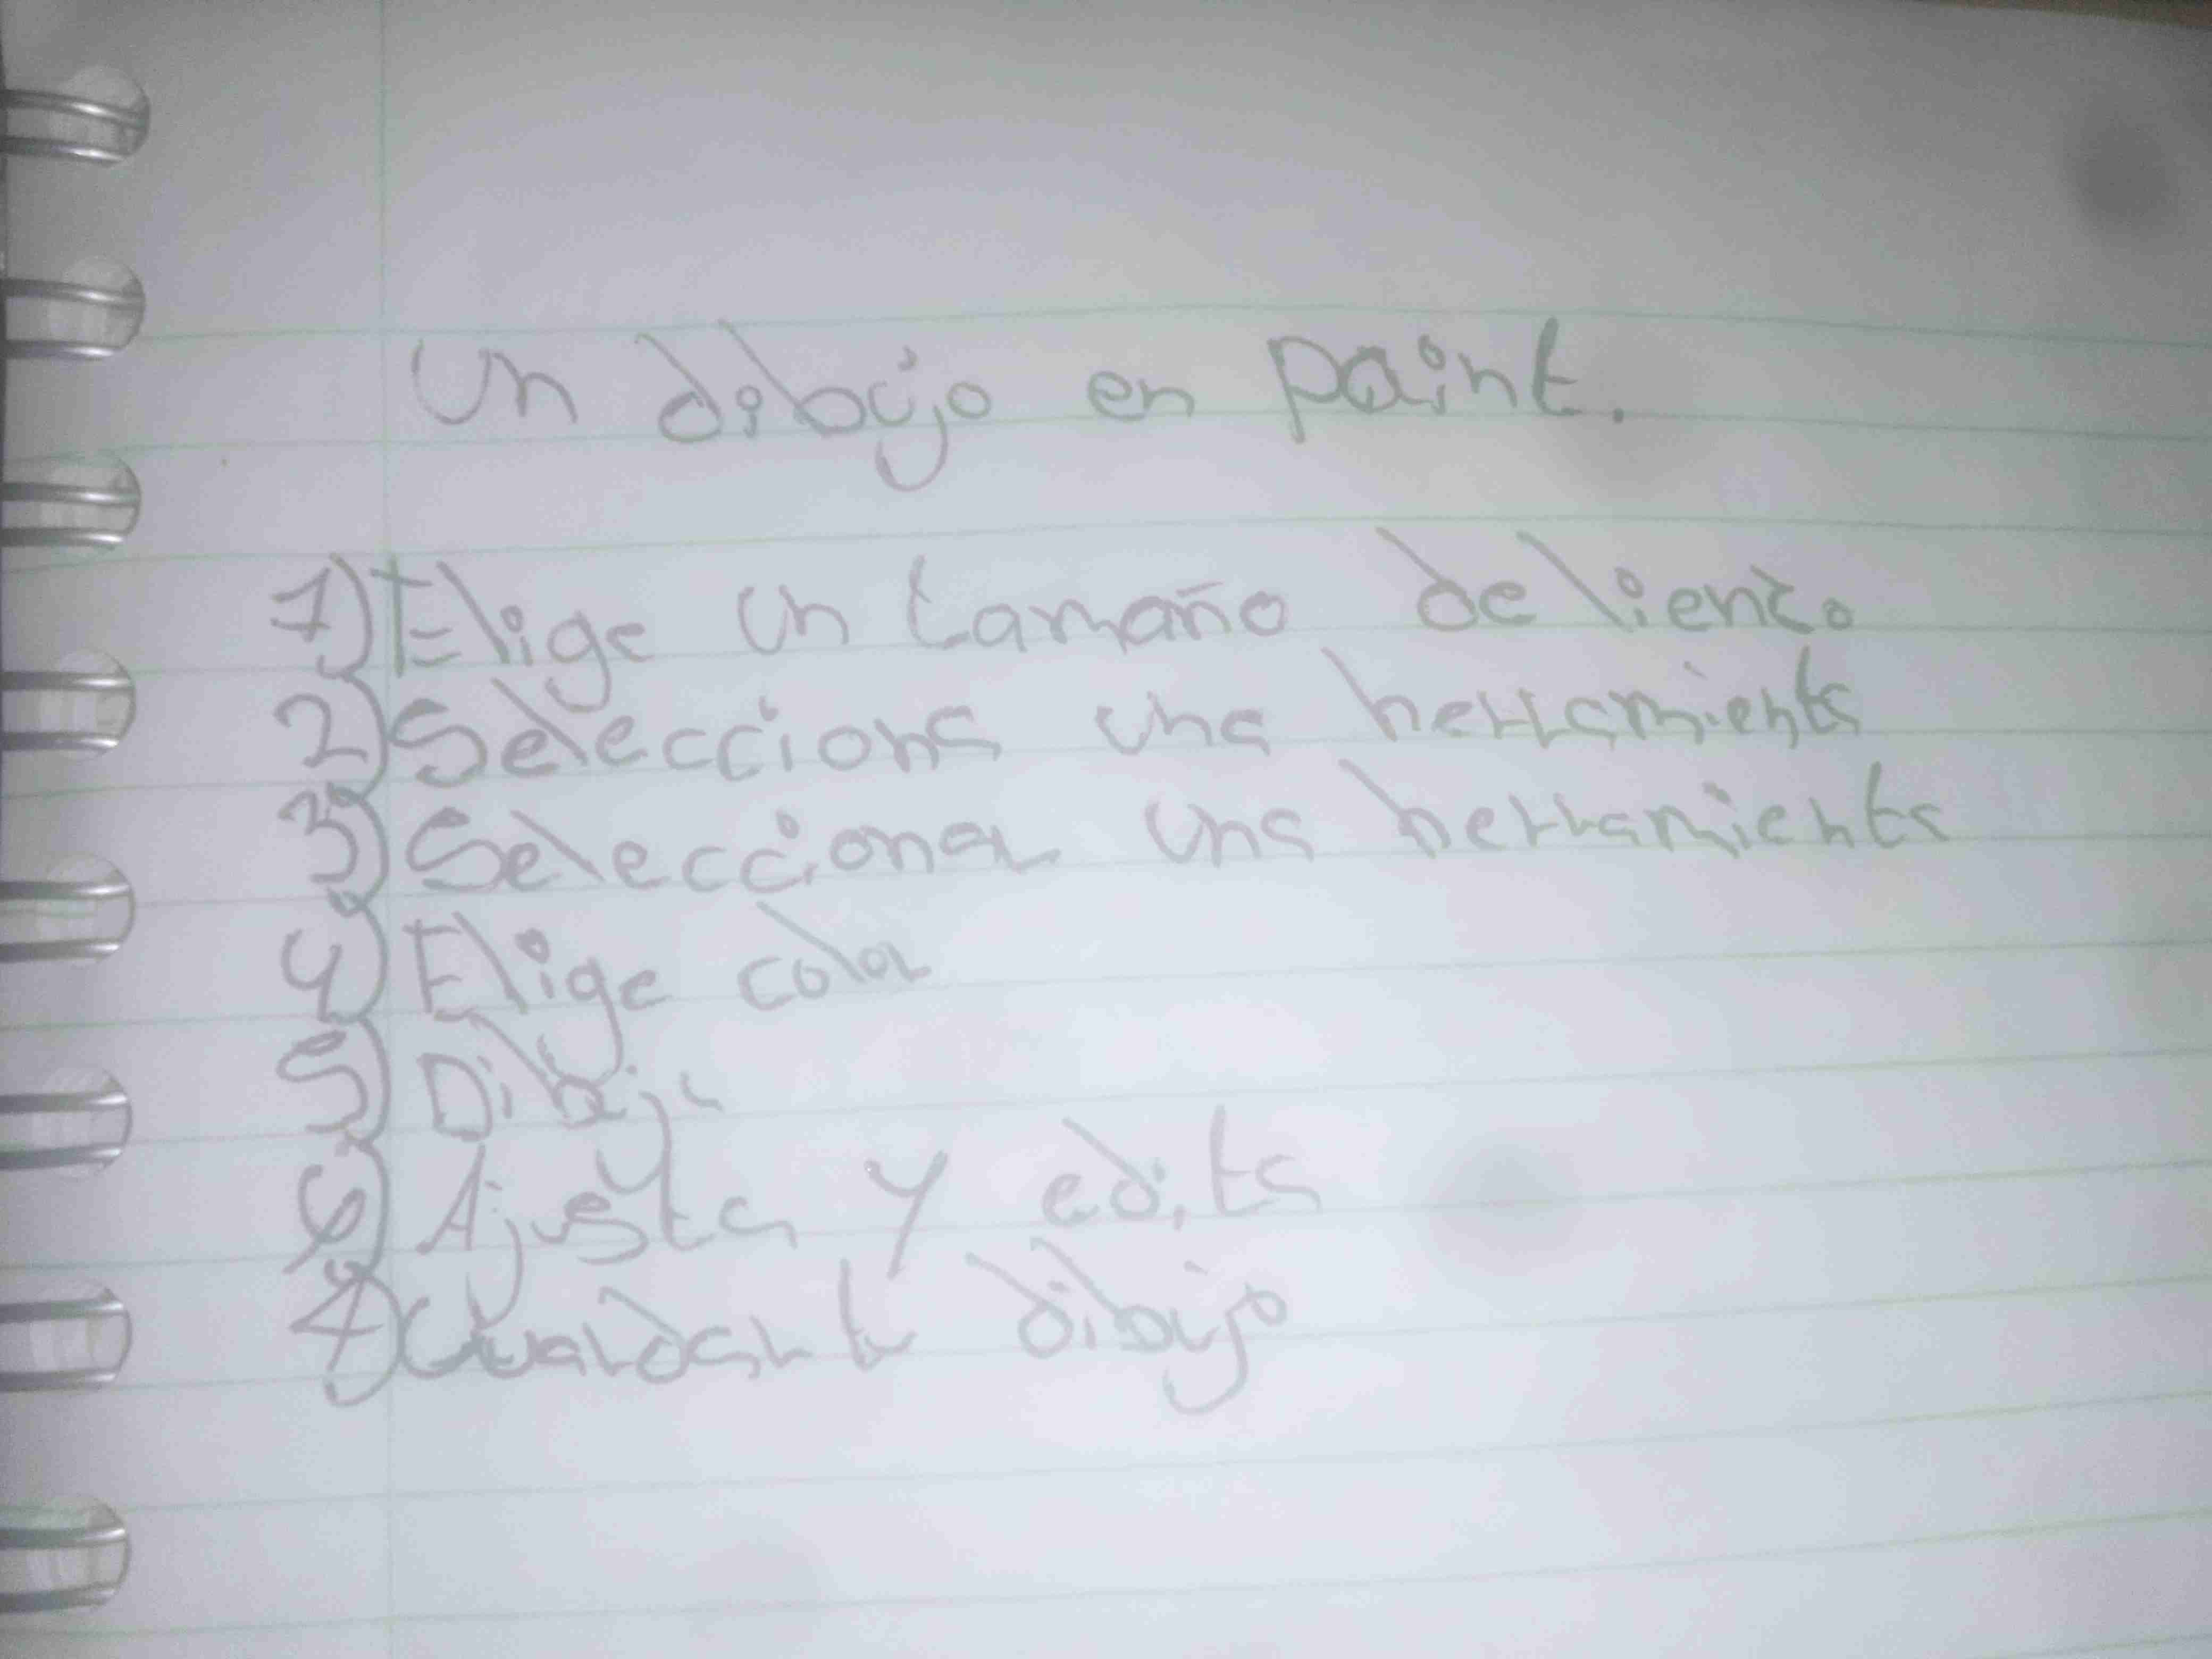 un dibujo en paint.
1) Elige un tamaño de lienzo
2) Selecciona una herramienta
3) Seleccionar una herramienta
4) Elige color
5) Dibuja
6) Ajusta y edita
7) Guardar tu dibujo